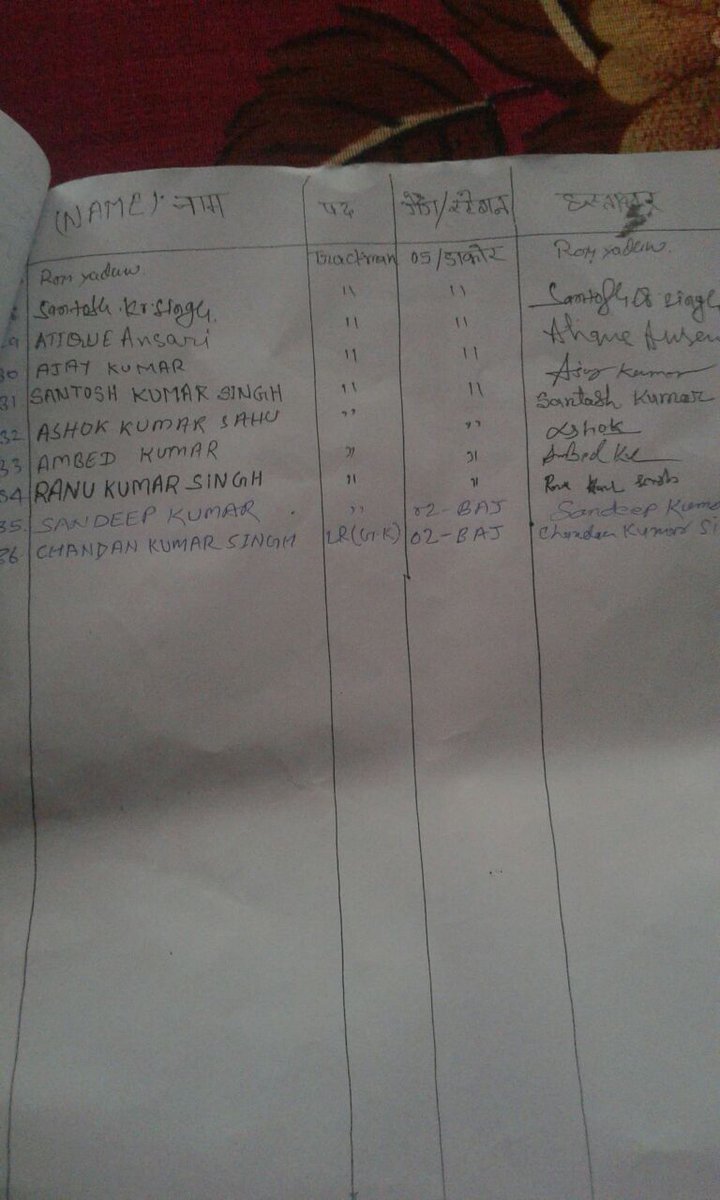 (NAME) नाम पद गैंग/स्टेशन हस्ताक्षर
Ram yadaw Trackman 05/ Ram yadaw
Santosh Kr Singh. " " Santosh Singh
ATIQUE Ansari " " Atique Ansari
30 AJAY KUMAR " " Ajay Kumar
31 SANTOSH KUMAR SINGH " " Santosh Kumar
32 ASHOK KUMAR SAHU " " Ashok
33 AMBED KUMAR " " Ambed
34 RANU KUMAR SINGH " "
35. SANDEEP KUMAR " 02-BAJ Sandeep Kuma
36 CHANDAN KUMAR SINGH 02-BAJ Chandan Kumar Si